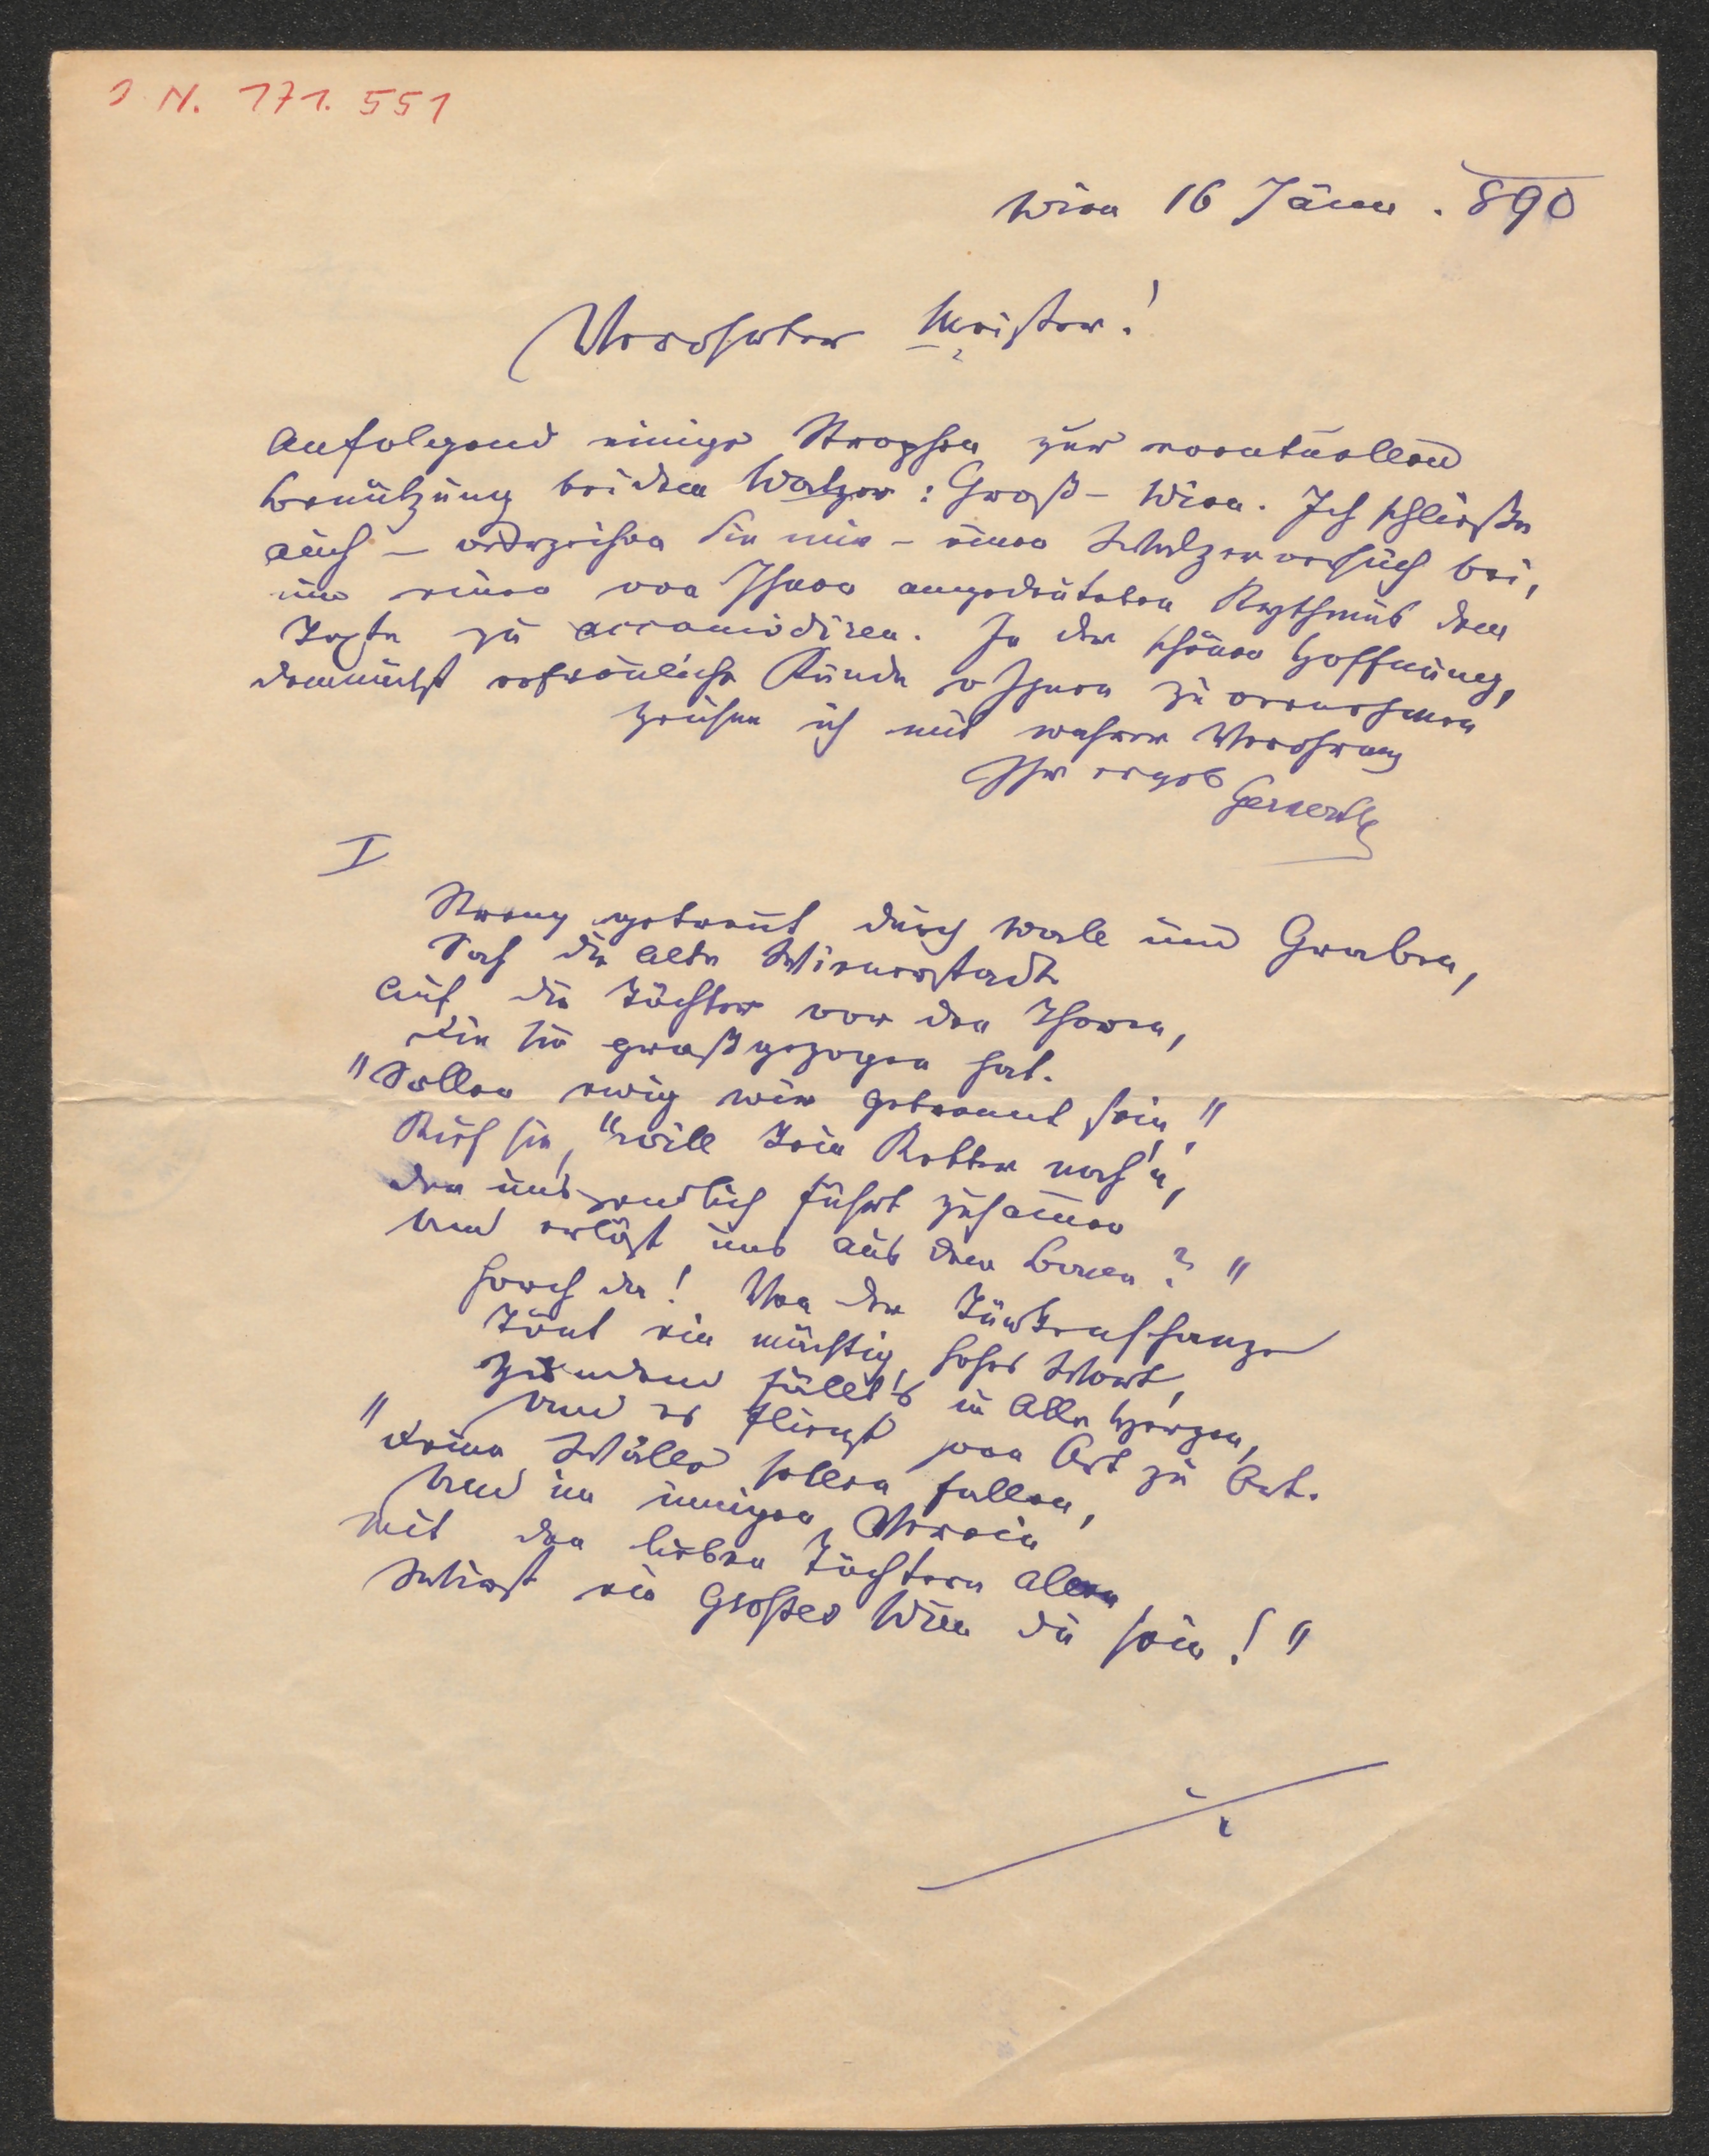 I N. 171.551
Wien 16 Jänner . 890
Verehrter Meister!
Anfolgend einige Strophen zur eventuellen
Benützung bei dem Walzer: Groß-Wien. Ich schließe
auch – verzeihen Sie mir – einen Walzerversuch bei,
um einen von Ihnen angedeuteten Rythmus dem
Texte zu accomodiren. In der schönen Hoffnung,
demnächst erfreuliche Kunde v Ihnen zu vernehmen
zeichne ich mit wahrer Verehrung
Ihr ergeb Gernerth
I
Streng getrennt durch Wall und Graben,
Sah die alte Wienerstadt
Auf die Töchter vor den Thoren,
Die sie großgezogen hat.
"Sollen ewig wir getrennt sein,"
Rief sie, "will kein Retter nah'n,
Der uns endlich führt zusammen
Und erlöst uns aus dem Bann?"
Horch da! Von der Türkenschanze
Tönt ein mächtig, hohes Wort,
Zündend fällt's in Alle Herzen,
Und es fliegt von Ort zu Ort.
"Deine Wälle sollen fallen,
Und im innigen Verein
Mit den lieben Töchtern allen
Wirst ein Großes Wien du sein!"